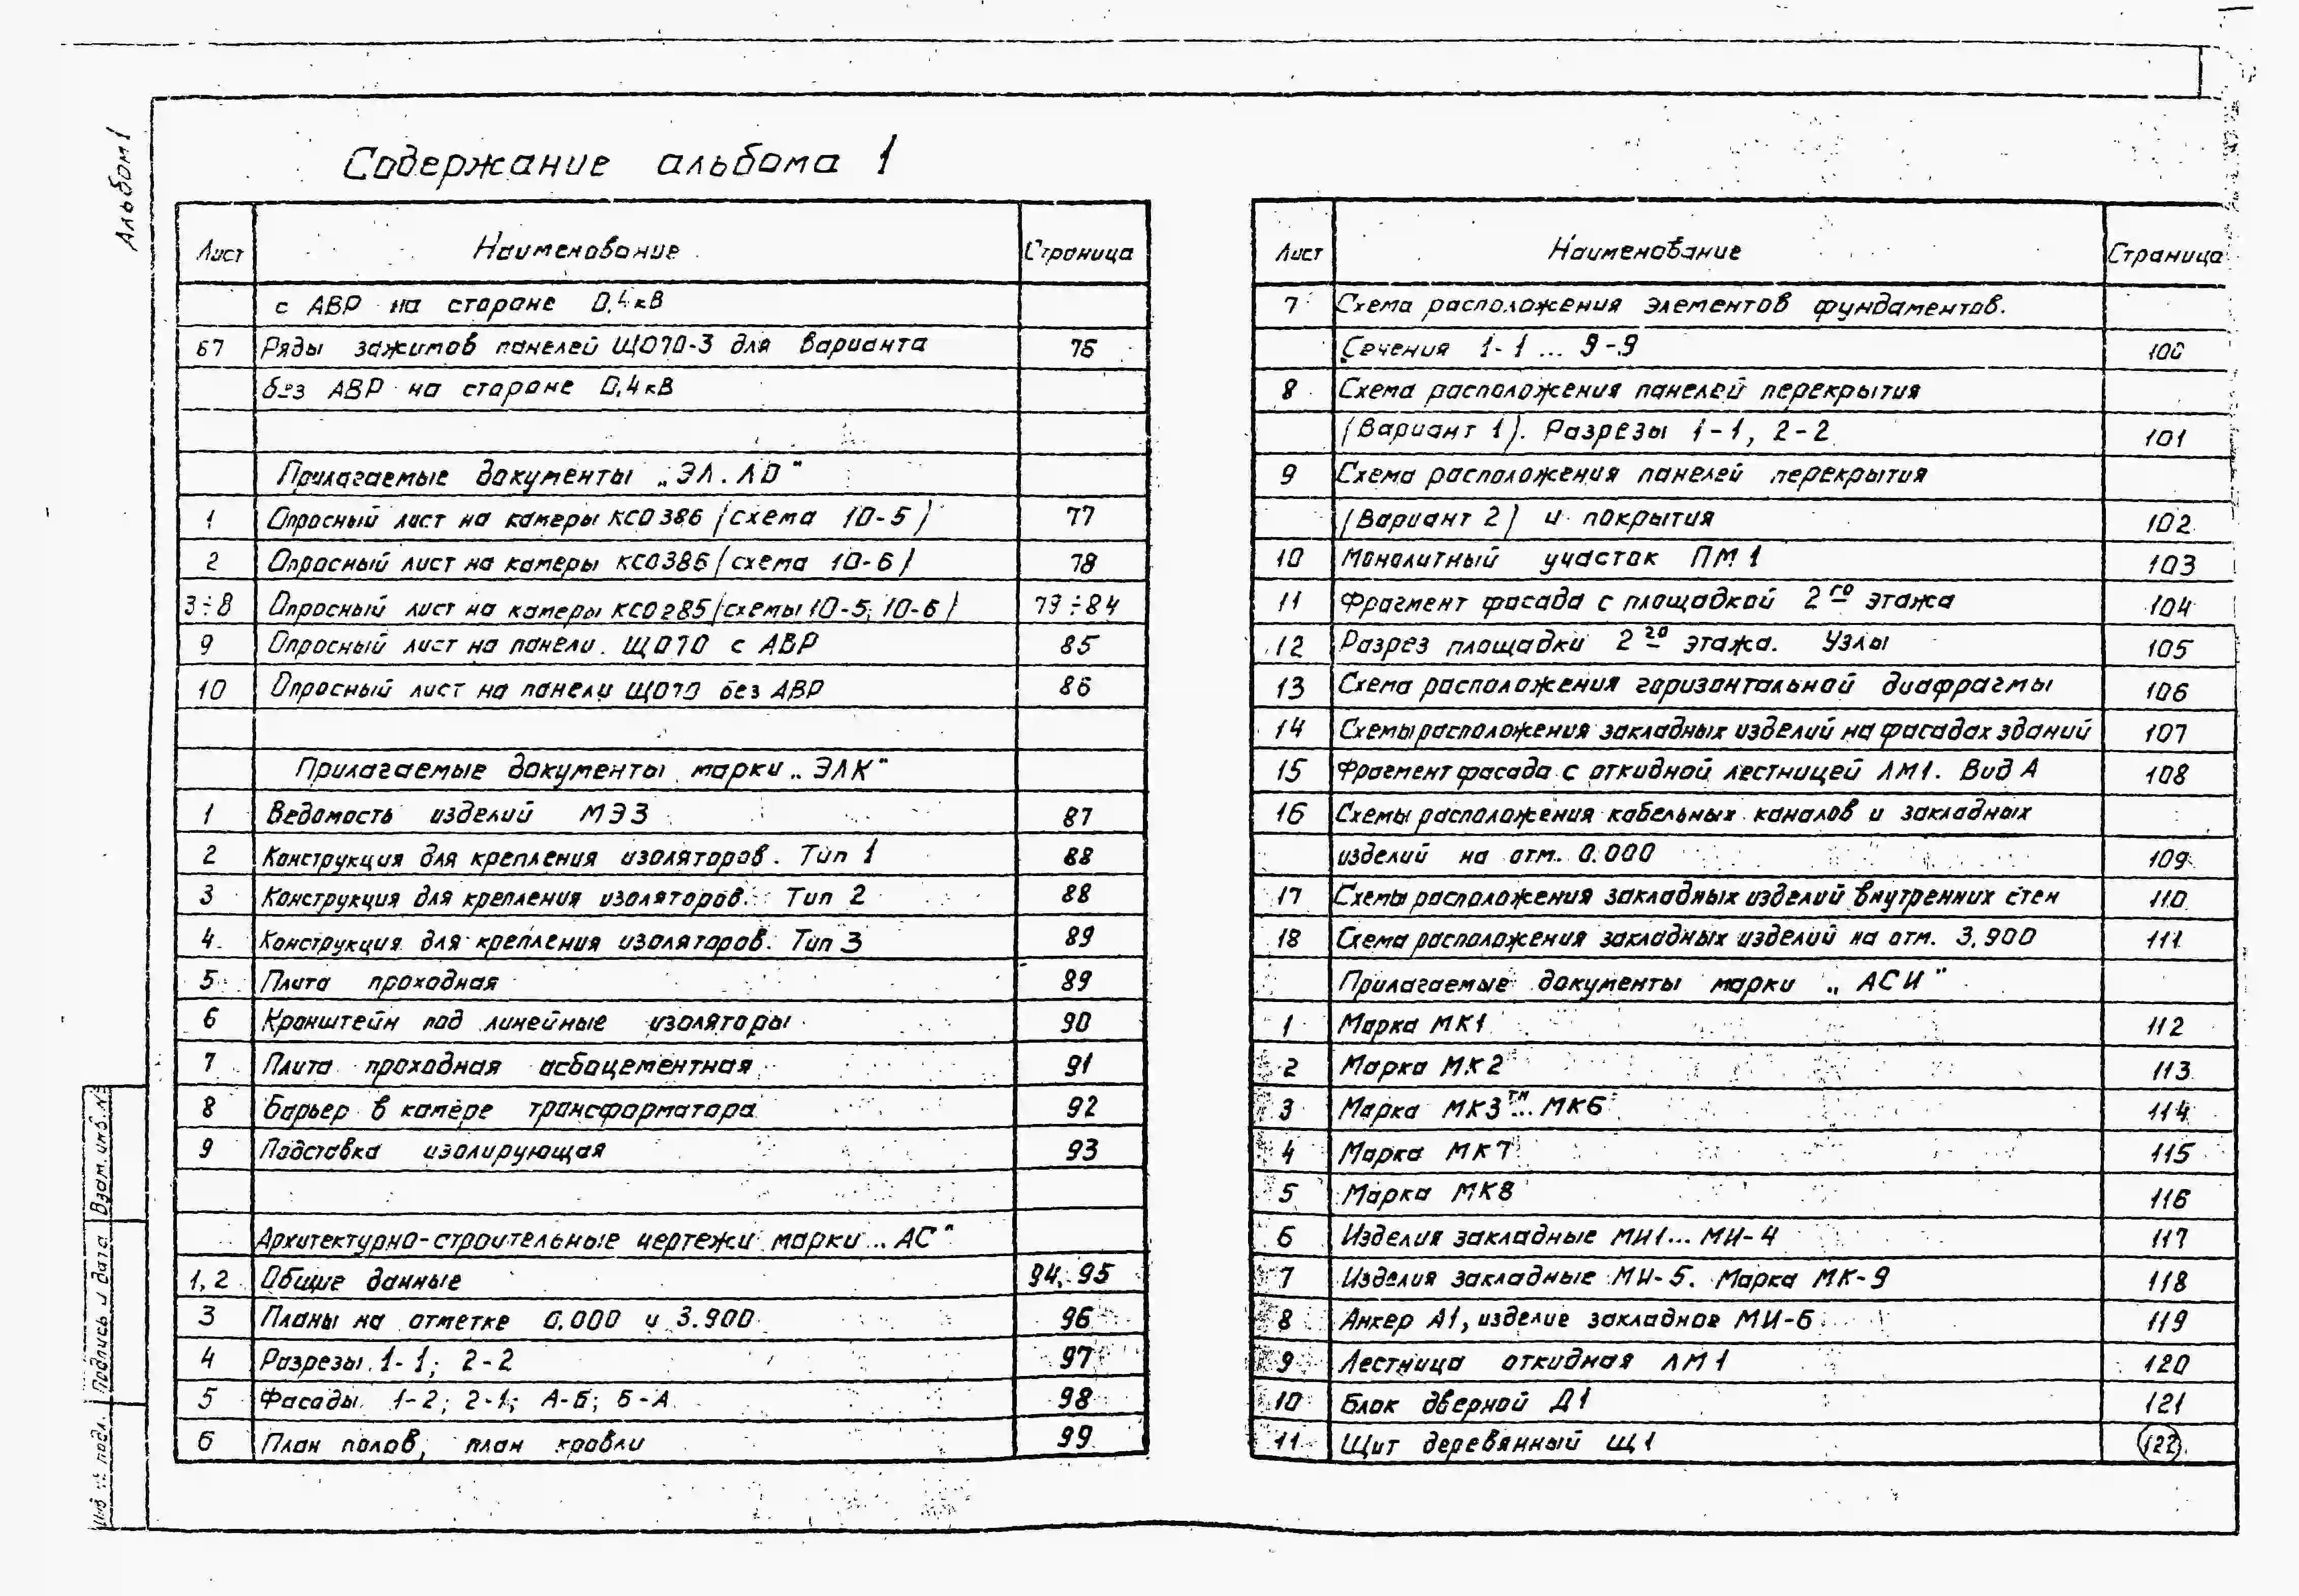 Альбом 1
Содержание альбома 1
Лист Наименование Страница
с АВР на стороне 0,4 кВ
67 Ряды зажимов панелей ЩО70-3 для варианта 76
без АВР на стороне 0,4 кВ
Прилагаемые документы „ЭЛ.ЛО"
1 Опросный лист на камеры КСО386 (схема 10-5) 77
2 Опросный лист на камеры КСО386 (схема 10-6) 78
3÷8 Опросный лист на камеры КСО285 (схемы 10-5; 10-6) 79÷84
9 Опросный лист на панели ЩО70 с АВР 85
10 Опросный лист на панели ЩО70 без АВР 86
Прилагаемые документы марки „ЭЛК"
1 Ведомость изделий МЭЗ 87
2 Конструкция для крепления изоляторов. Тип 1 88
3 Конструкция для крепления изоляторов. Тип 2 88
4 Конструкция для крепления изоляторов. Тип 3 89
5 Плита проходная 89
6 Кронштейн под линейные изоляторы 90
7 Плита проходная асбоцементная 91
8 Барьер в камере трансформатора 92
9 Подставка изолирующая 93
Архитектурно-строительные чертежи марки „АС"
1, 2 Общие данные 94, 95
3 Планы на отметке 0.000 и 3.900 96
4 Разрезы 1-1; 2-2 97
5 Фасады 1-2; 2-1; А-Б; Б-А 98
6 План полов, план кровли 99
Лист Наименование Страница
7 Схема расположения элементов фундаментов.
Сечения 1-1 ... 9-9 100
8 Схема расположения панелей перекрытия
(Вариант 1). Разрезы 1-1, 2-2 101
9 Схема расположения панелей перекрытия
(Вариант 2) и покрытия 102
10 Монолитный участок ПМ 1 103
11 Фрагмент фасада с площадкой 2го этажа 104
12 Разрез площадки 2го этажа. Узлы 105
13 Схема расположения горизонтальной диафрагмы 106
14 Схемы расположения закладных изделий на фасадах зданий 107
15 Фрагмент фасада с откидной лестницей ЛМ1. Вид А 108
16 Схемы расположения кабельных каналов и закладных
изделий на отм. 0.000 109
17 Схемы расположения закладных изделий внутренних стен 110
18 Схема расположения закладных изделий на отм. 3.900 111
Прилагаемые документы марки „АСИ"
1 Марка МК1 112
2 Марка МК2 113
3 Марка МК3...МК6 114
4 Марка МК7 115
5 Марка МК8 116
6 Изделия закладные МИ1... МИ-4 117
7 Изделия закладные МИ-5. Марка МК-9 118
8 Анкер А1, изделие закладное МИ-6 119
9 Лестница откидная ЛМ1 120
10 Блок дверной Д1 121
11 Щит деревянный Щ1 122
Инв № подл. Подпись и дата Взам. инв. №